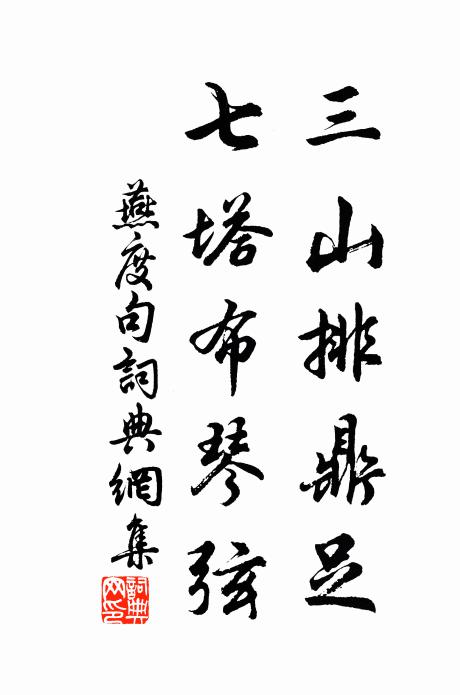 三山排鼎足
七塔布琴弦
燕度句詞典網集
詞典網印